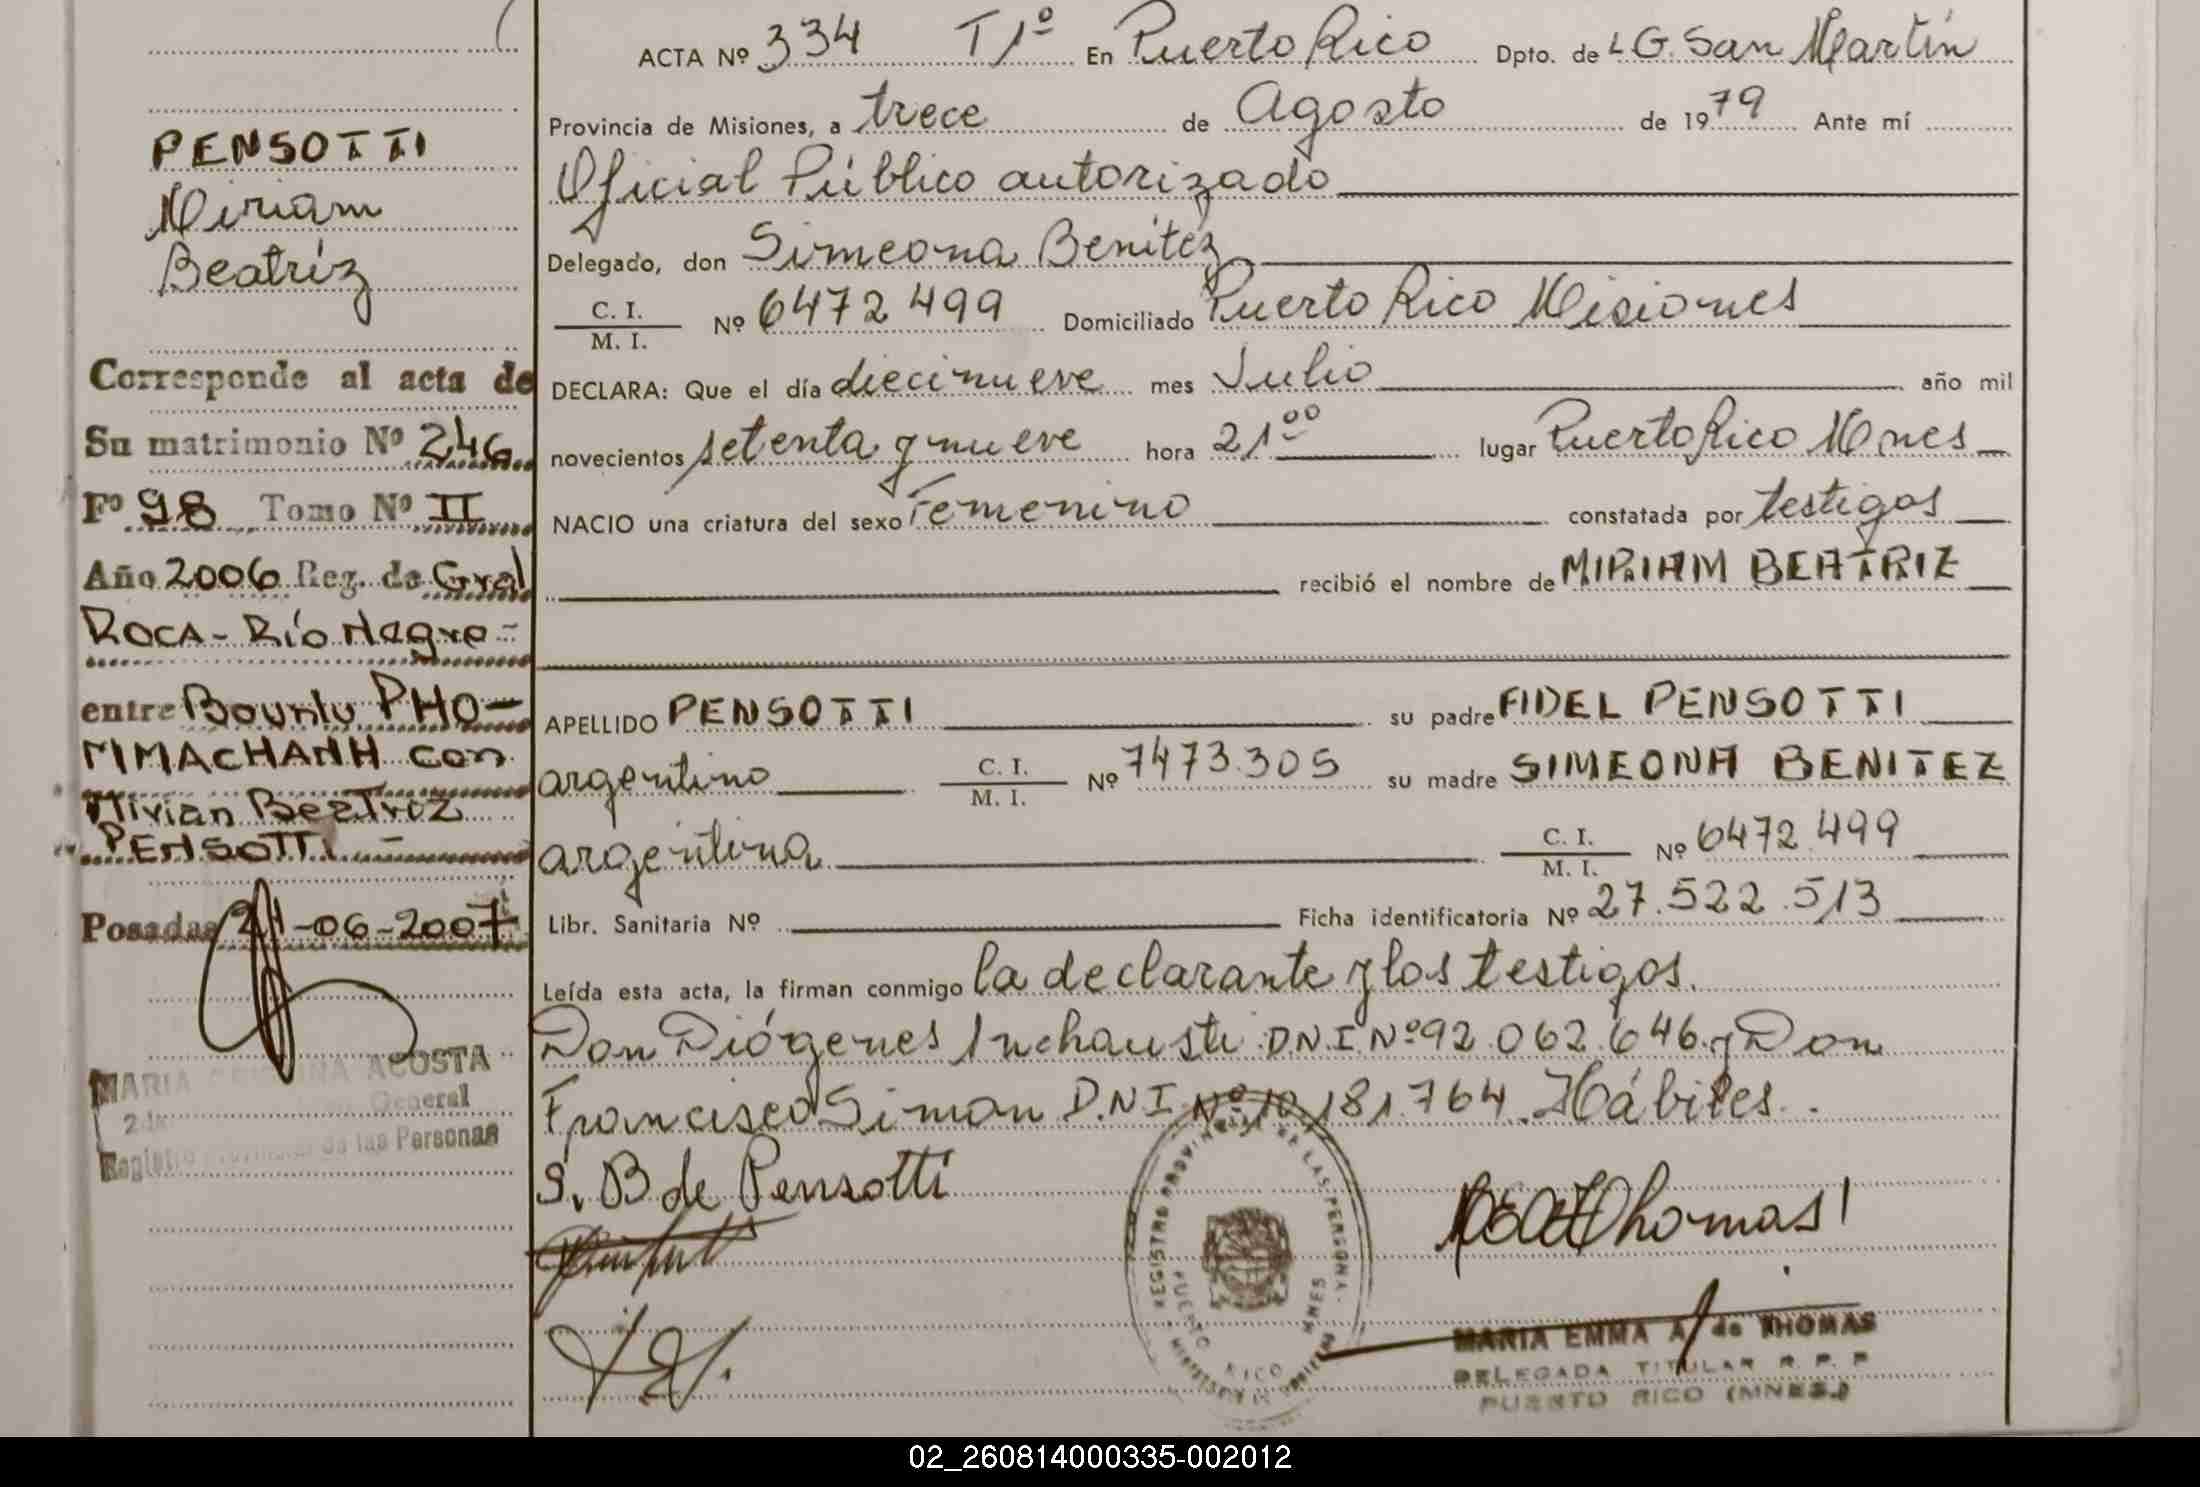 PENSOTTI
Miriam
Beatríz
Corresponde al acta de
Su matrimonio Nº 246
Fº 98 Tomo Nº II
Año 2006 Reg. de Gral
ROCA - Río Negro -
entre Bounlu PHO-
MMACHANH con
Mirian Beatriz
PENSOTTI -
Posadas 21-06-2007
MARIA ACOSTA
General
de las Personas
ACTA Nº 334 T1º En Puerto Rico Dpto. de L G. San Martín
Provincia de Misiones, a trece de Agosto de 1979 Ante mí
Oficial Público autorizado
Delegado, don Simeona Benítez
C. I. / M. I. Nº 6472499 Domiciliado Puerto Rico Misiones
DECLARA: Que el día diecinueve mes Julio año mil
novecientos setenta y nueve hora 21⁰⁰ lugar Puerto Rico Mnes
NACIO una criatura del sexo Femenino constatada por testigos
recibió el nombre de MIRIAM BEATRIZ
APELLIDO PENSOTTI su padre FIDEL PENSOTTI
argentino C. I. / M. I. Nº 7473.305 su madre SIMEONA BENITEZ
argentina C. I. / M. I. Nº 6472.499
Libr. Sanitaria Nº Ficha identificatoria Nº 27.522.513
Leída esta acta, la firman conmigo la declarante y los testigos.
Don Diógenes Inchausti D.N.I. Nº 92.062.646 y Don
Francisco Simon D.N.I. Nº 10.181.764. Hábiles.
S. B de Pensotti
Thomas
REGISTRO PROVINCIAL DE LAS PERSONAS
PUERTO RICO MNES
MARIA EMMA A. de THOMAS
DELEGADA TITULAR R. P. P.
PUERTO RICO (MNES.)
02_260814000335-002012